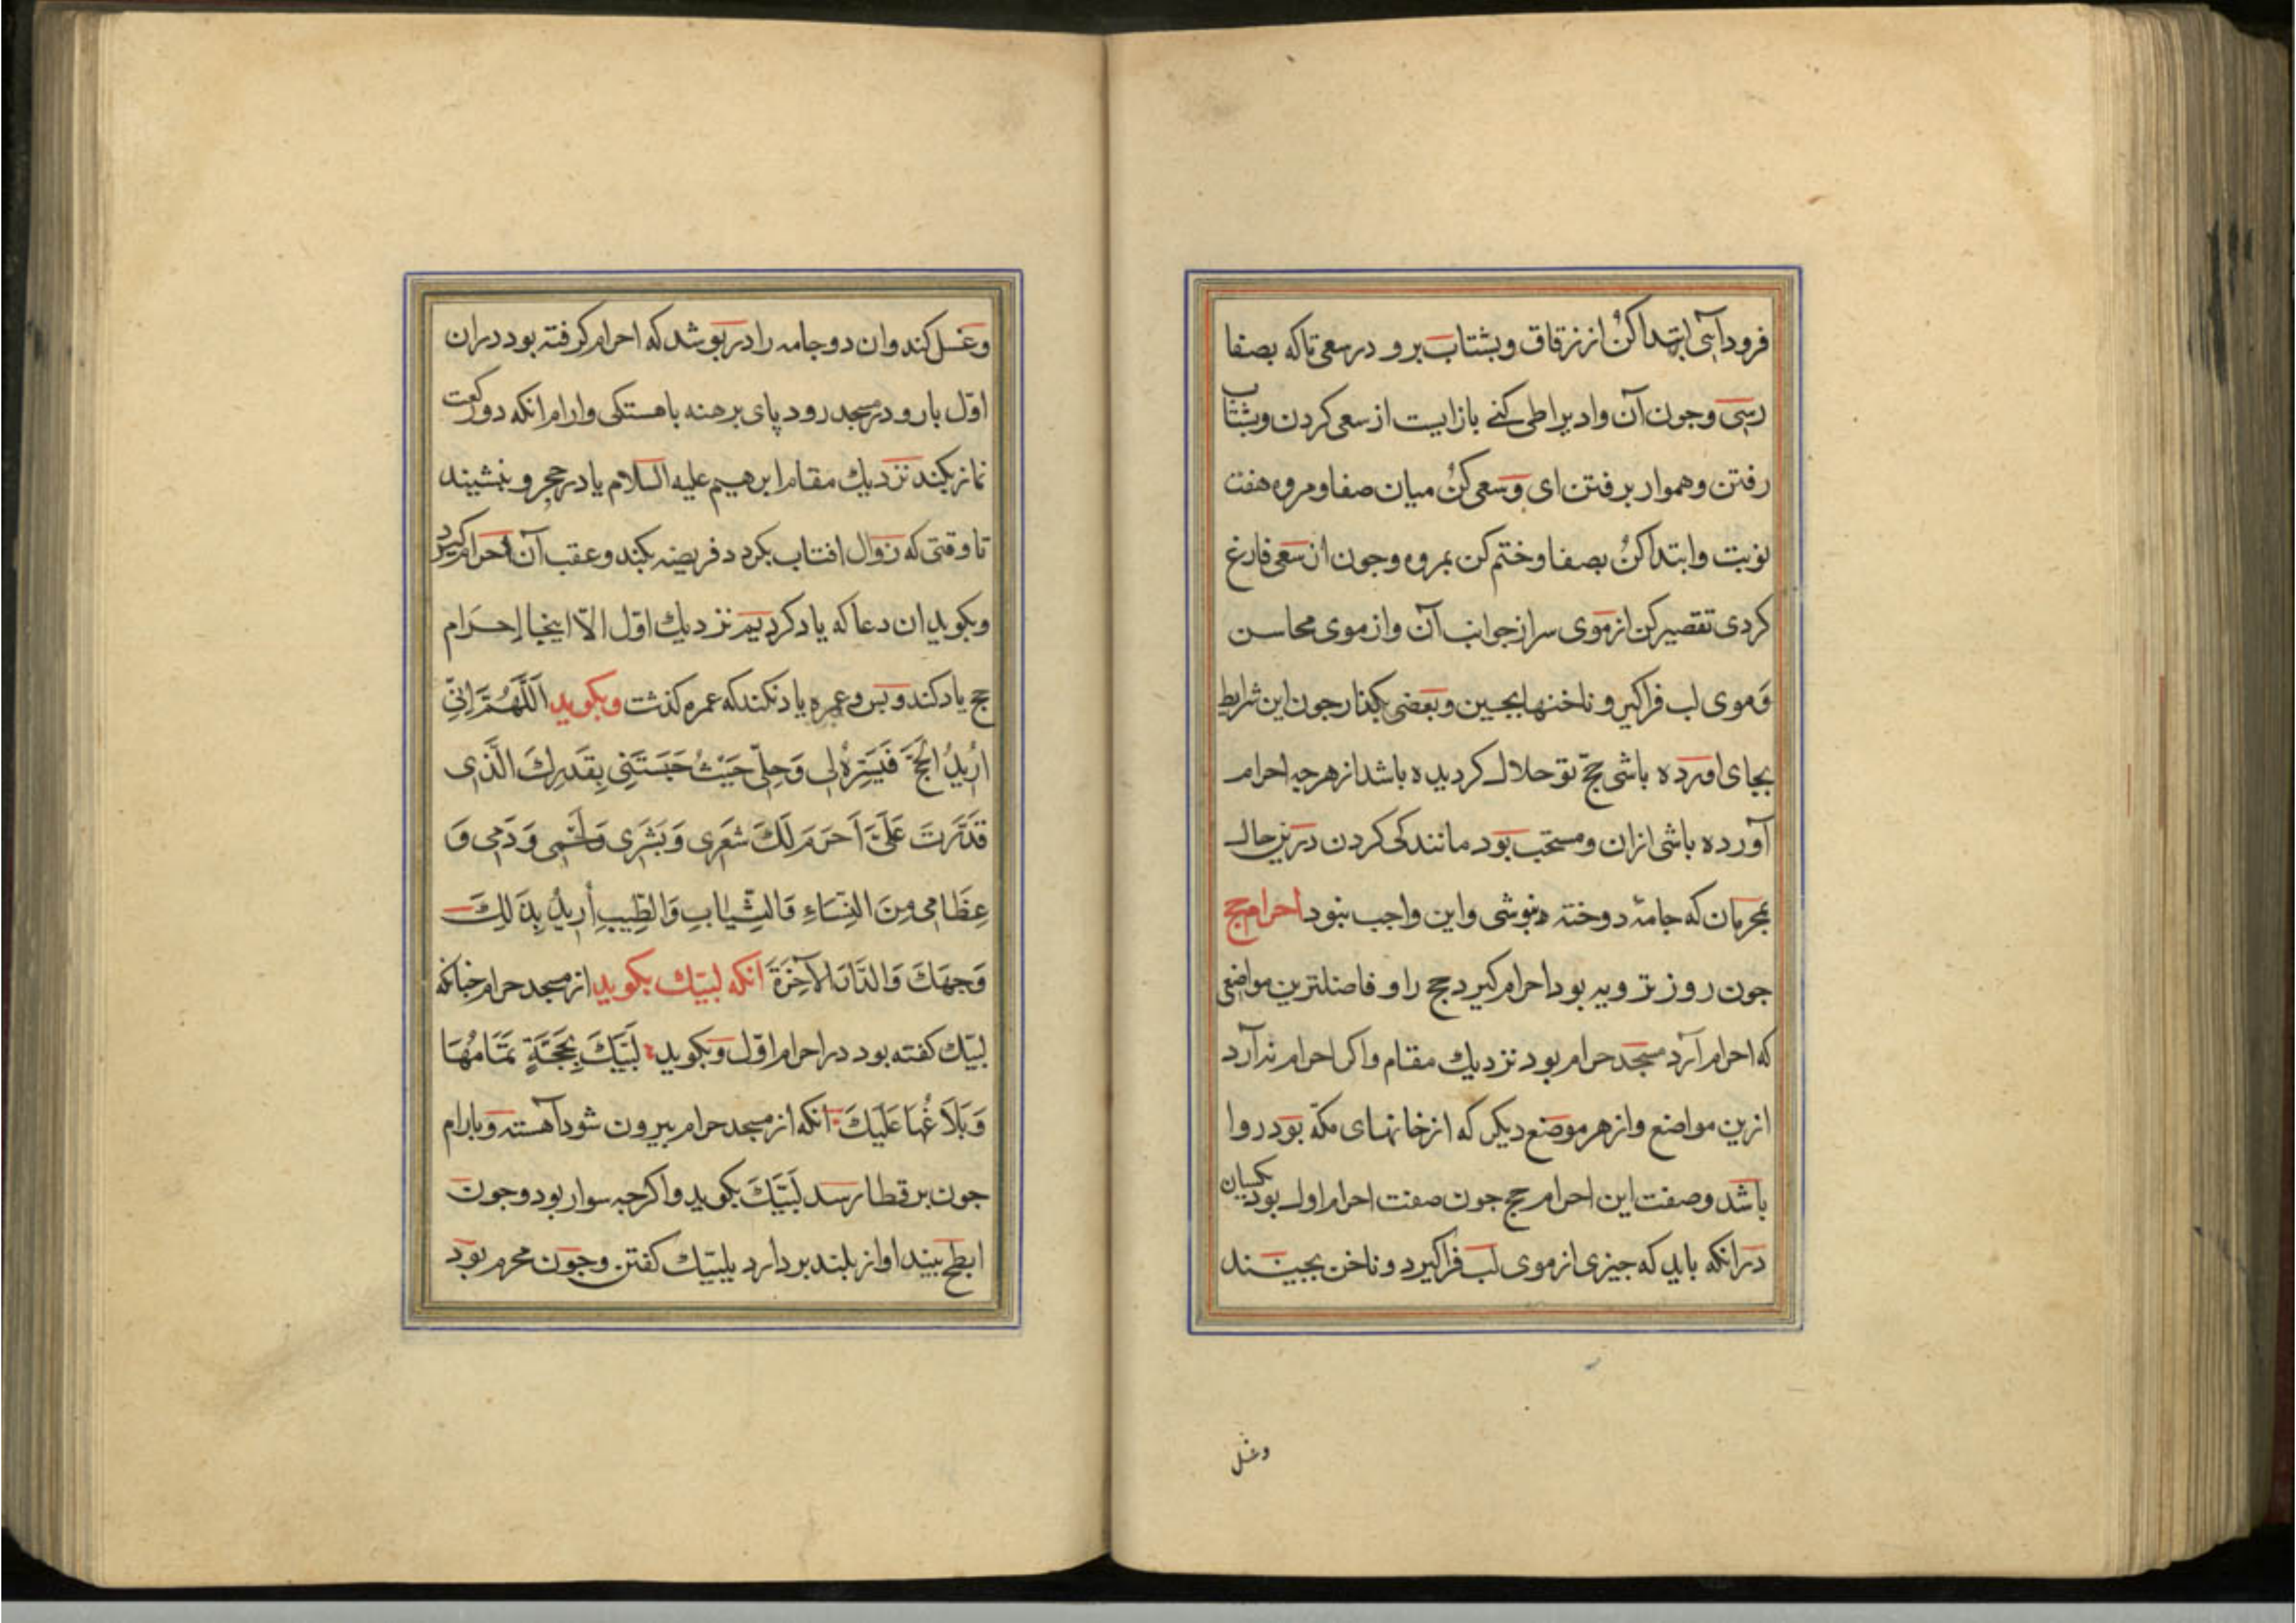 فرود آیی ابتدا کن از زقاق و بشتاب برو در سعی تا که بصفا
رسی و جون آن وادیرا طی کنے باز ایست از سعی کردن و بشتاب
رفتن و هموار برفتن ای و سعی کن میان صفا و مروه هفت
نوبت و ابتدا کن بصفا و ختم کن بمروه و جون ازن سعی فارغ
کردی تقصیر کن از موی سر از جوانب آن و از موی محاسن
و موی لب فراکیر و ناخنها بجین و بعضی بکذار جون این شرایط
بجای اورده باشی حجّ تو حلال کردیده باشد از هرجه احرام
آورده باشی ازان و مستحب بود مانندکی کردن درین حال
بمحرمان که جامهٔ دوخته نبوشی و این واجب نبود احرام حج
جون روز ترویه بود احرام کیرد حج را و فاضلترین مواضعی
که احرام آرد مسجد حرام بود نزدیك مقام و اکر احرام نه آرد
ازین مواضع و از هر موضع دیکر که از خانهای مکّه بود روا
باشد و صفت این احرام حج جون صفت احرام اول بود یکسان
در انکه باید که جیزی از موی لب فراکیرد و ناخن بجیند
وغسل
و غسل کند و ان دو جامه را در بوشد که احرام کرفته بود دران
اوّل بار و در مسجد رود پای برهنه باهستکی و ارام انکه دو رکعت
نماز بکند نزدیك مقام ابرهیم علیه السلام یا در حجر و بنشیند
تا وقتی که زوال افتاب بکردد فریضه بکند و عقب آن احرام کیرد
و بکوید ان دعا که یاد کردیم نزدیك اوّل الّا اینجا إحرام
حج یاد کند و بس و عمره یاد نکند که عمره کذشت و بکوید اَللَّهُمَّ اِنِّی
اُرِیدُ الحَجَّ فَیَسِّرْهُ لِی وَحِلّی حَیْثُ حَبَسْتَنِی بِقَدَرِكَ الَّذِی
قَدَّرْتَ عَلَیَّ اَحرَمَ لَكَ شَعَری وَبَشَری وَلَحْمِی وَدَمِی وَ
عِظَامِی مِنَ النِّسَاءِ وَالثِّیَابِ وَالطِّیبِ أُرِیدُ بِذَلِكَ
وَجهَكَ وَالدَّارَ الآخِرَةَ انکه لبّیك بکوید از مسجد حرام جنانکه
لبّیك کفته بود در احرام اوّل و بکوید لَبَّیَكَ بِحَجَّةٍ تَمَامُهَا
وَبَلَاغُهَا عَلَیكَ انکه از مسجد حرام بیرون شود آهسته و بارام
جون بر قطا رسد لَبَّیَكَ بکوید و اکرجه سوار بود و جون
ابطح بیند اواز بلند بردارد بلبّیك کفتن و جون محرم بود